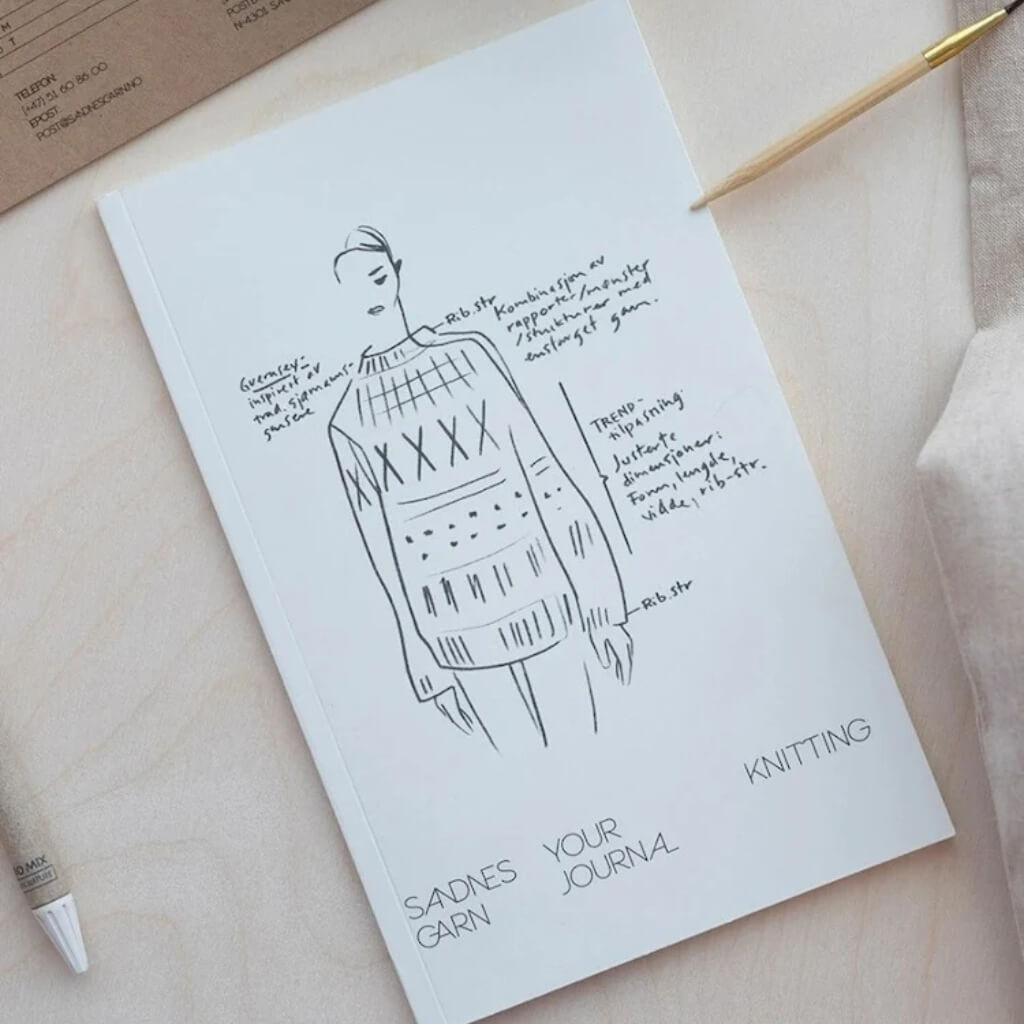 TELEFON:
(+47) 51 60 86 00
EPOST:
POST@SANDNESGARN.NO
N-4301 SAND
Rib.str
Kombinasjon av
rapporter/mønster
/strukturer med
ensfarget garn.
Guernsey-
inspirert av
trad. sjømanns-
gensere
TREND-
tilpasning:
Justerte
dimensjoner:
Form, lengde,
vidde, rib-str.
Rib.str
KNITTING
YOUR
JOURNAL
SANDNES
GARN
MIX